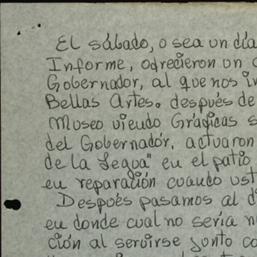 El sábado, o sea un día
Informe, odrecieron un
Gobernador, al que nos
Bellas Artes. después de
Museo viendo Gráficas
del Gobernador, actuaron
de la Legua" en el patio
en reparación cuando ust
Después pasamos al d
en donde cual no sería n
ción al servirse junto co